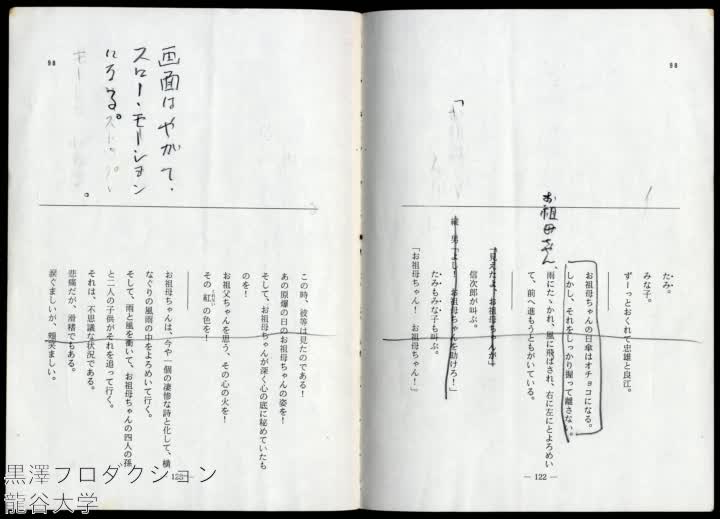 98
たみ。
みな子。
ずーっとおくれて忠雄と良江。
お祖母ちゃんの日傘はオチョコになる。
しかし、それをしっかり握って離さない。
お祖母ちゃん、
雨にたゝかれ、風に飛ばされ、右に左によろめい
て、前へ進もうともがいている。
「見えたよ、お祖母ちゃんが」
信次郎が叫ぶ。
縦男「よし！ お祖母ちゃんを助けろ！」
たみもみな子も叫ぶ。
「お祖母ちゃん！ お祖母ちゃん！」
— 122 —
98
画面はやがて、
スロー・モーション
になる。
この時、彼等は見たのである！
あの原爆の日のお祖母ちゃんの姿を！
そして、お祖母ちゃんが深く心の底に秘めていたも
のを！
お祖父ちゃんを思う、その心の火を！
その紅の色を！
くれない
お祖母ちゃんは、今や一個の凄惨な詩と化して、横
なぐりの風雨の中をよろめいて行く。
そして、雨と風を衝いて、お祖母ちゃんの四人の孫
と二人の子供がそれを追って行く。
それは、不思議な状況である。
悲痛だが、滑稽でもある。
涙ぐましいが、微笑ましい。
黒澤プロダクション
龍谷大学